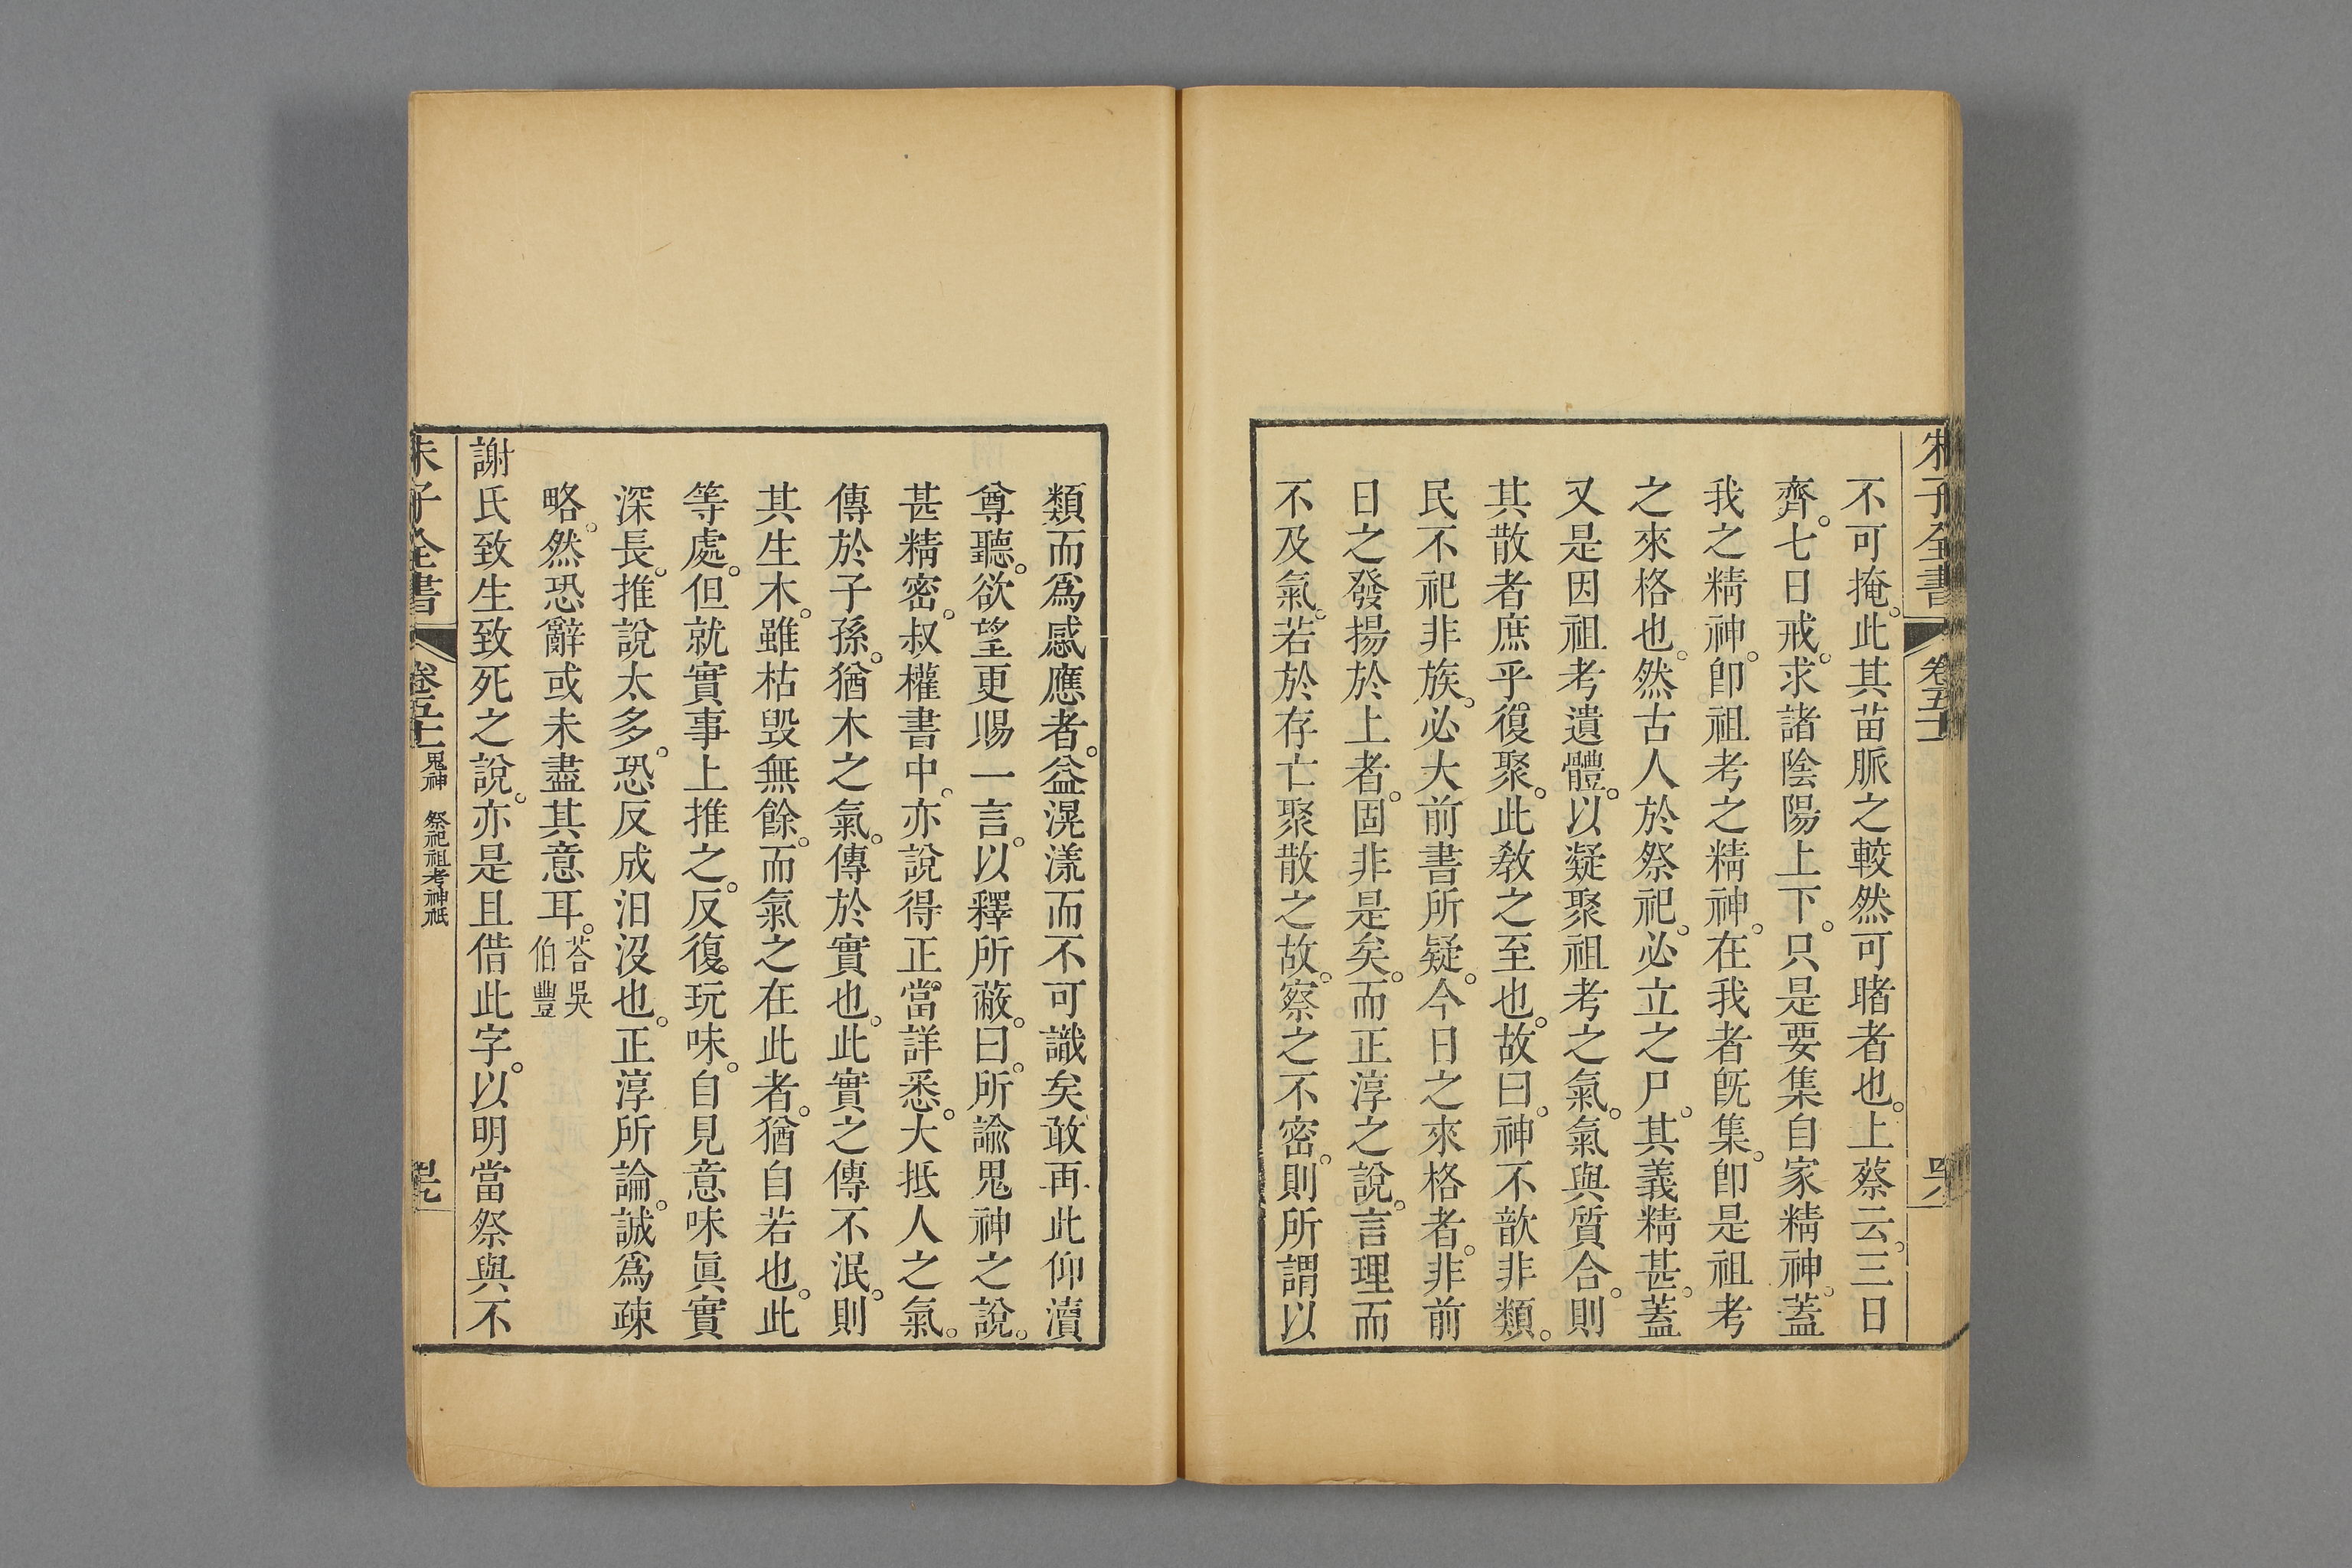 朱子全書 卷五十一
不可掩。此其苗脈之較然可睹者也。上蔡云。三日
齊。七日戒。求諸陰陽上下。只是要集自家精神。蓋
我之精神。卽祖考之精神。在我者旣集。卽是祖考
之來格也。然古人於祭祀。必立之尸。其義精甚。蓋
又是因祖考遺體。以凝聚祖考之氣。氣與質合。則
其散者庶乎復聚。此敎之至也。故曰。神不歆非類。
民不祀非族。必大前書所疑。今日之來格者。非前
日之發揚於上者。固非是矣。而正淳之說。言理而
不及氣。若於存亡聚散之故。察之不密。則所謂以
類而爲感應者。益滉漾而不可識矣敢再此仰瀆
尊聽。欲望更賜一言。以釋所蔽。曰。所諭鬼神之說。
甚精密。叔權書中。亦說得正當詳悉。大抵人之氣。
傳於子孫。猶木之氣。傳於實也。此實之傳不泯。則
其生木。雖枯毀無餘。而氣之在此者。猶自若也。此
等處。但就實事上推之。反復玩味。自見意味眞實
深長。推說太多。恐反成汨沒也。正淳所論。誠爲疎
略。然恐辭或未盡其意耳。荅吳伯豐
謝氏致生致死之說。亦是且借此字。以明當祭與不
朱子全書 卷五十一 鬼神 祭祀祖考神祇